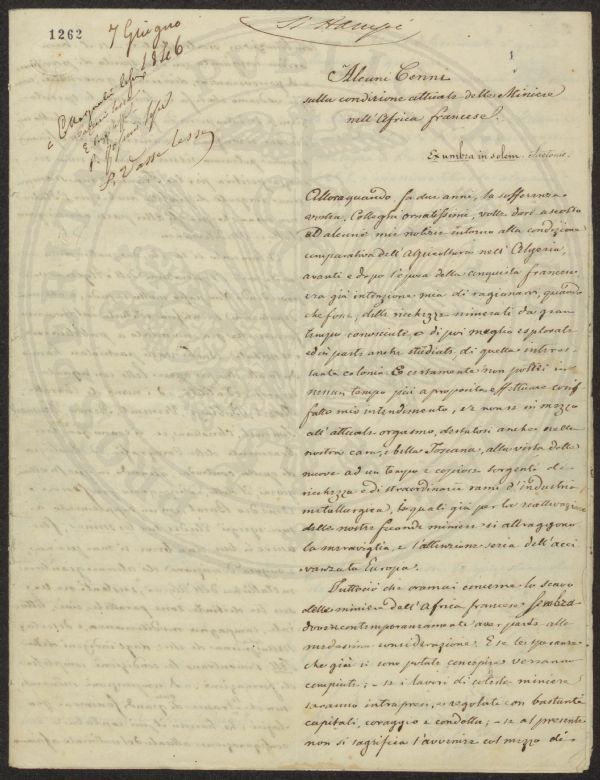 1262
7 Giugno
1846
Si Stampi
1
Alcuni Cenni
sulla condizione attuale delle Miniere
nell'Affrica francese.
Ex umbra in solem.
Alloraquando, fa due anni, la sofferenza
vostra, Colleghi ornatissimi, volle dare ascolto
ad alcune mie notizie intorno alla condizione
comparativa dell'Agricoltura nell'Algeria,
avanti e dopo l'epoca della conquista francese,
era già intenzione mia di ragionare, quando
che fosse, delle ricchezze minerali da gran
tempo conosciute, e di poi meglio esplorate
ed in parte anche studiate, di quella interes-
sante colonia. E certamente non potrei in
nessun tempo più a proposito effettuare così
fatto mio intendimento, se non se in mezzo
all'attuale orgasmo, destatosi anche nella
nostra cara, e bella Toscana, alla vista delle
nuove ad un tempo e copiose sorgenti di
ricchezza e di straordinarii rami d'industria
metallurgica, le quali già per la reattivazione
delle nostre feconde miniere si attraggono
la meraviglia, e l'attenzione seria dell'acci
vanzata Europa.
Tuttociò che oramai concerne lo scavo
delle miniere dell'Affrica francese sembra
dover contemporaneamente aver parte alla
medesima considerazione. E se le speranze
che già si sono potute concepire verranno
compiute; - se i lavori di coteste miniere
saranno intrapresi, e regolati con bastanti
capitali, coraggio e condotta; - se al presente
non si sagrifica l'avvenire col mezzo di